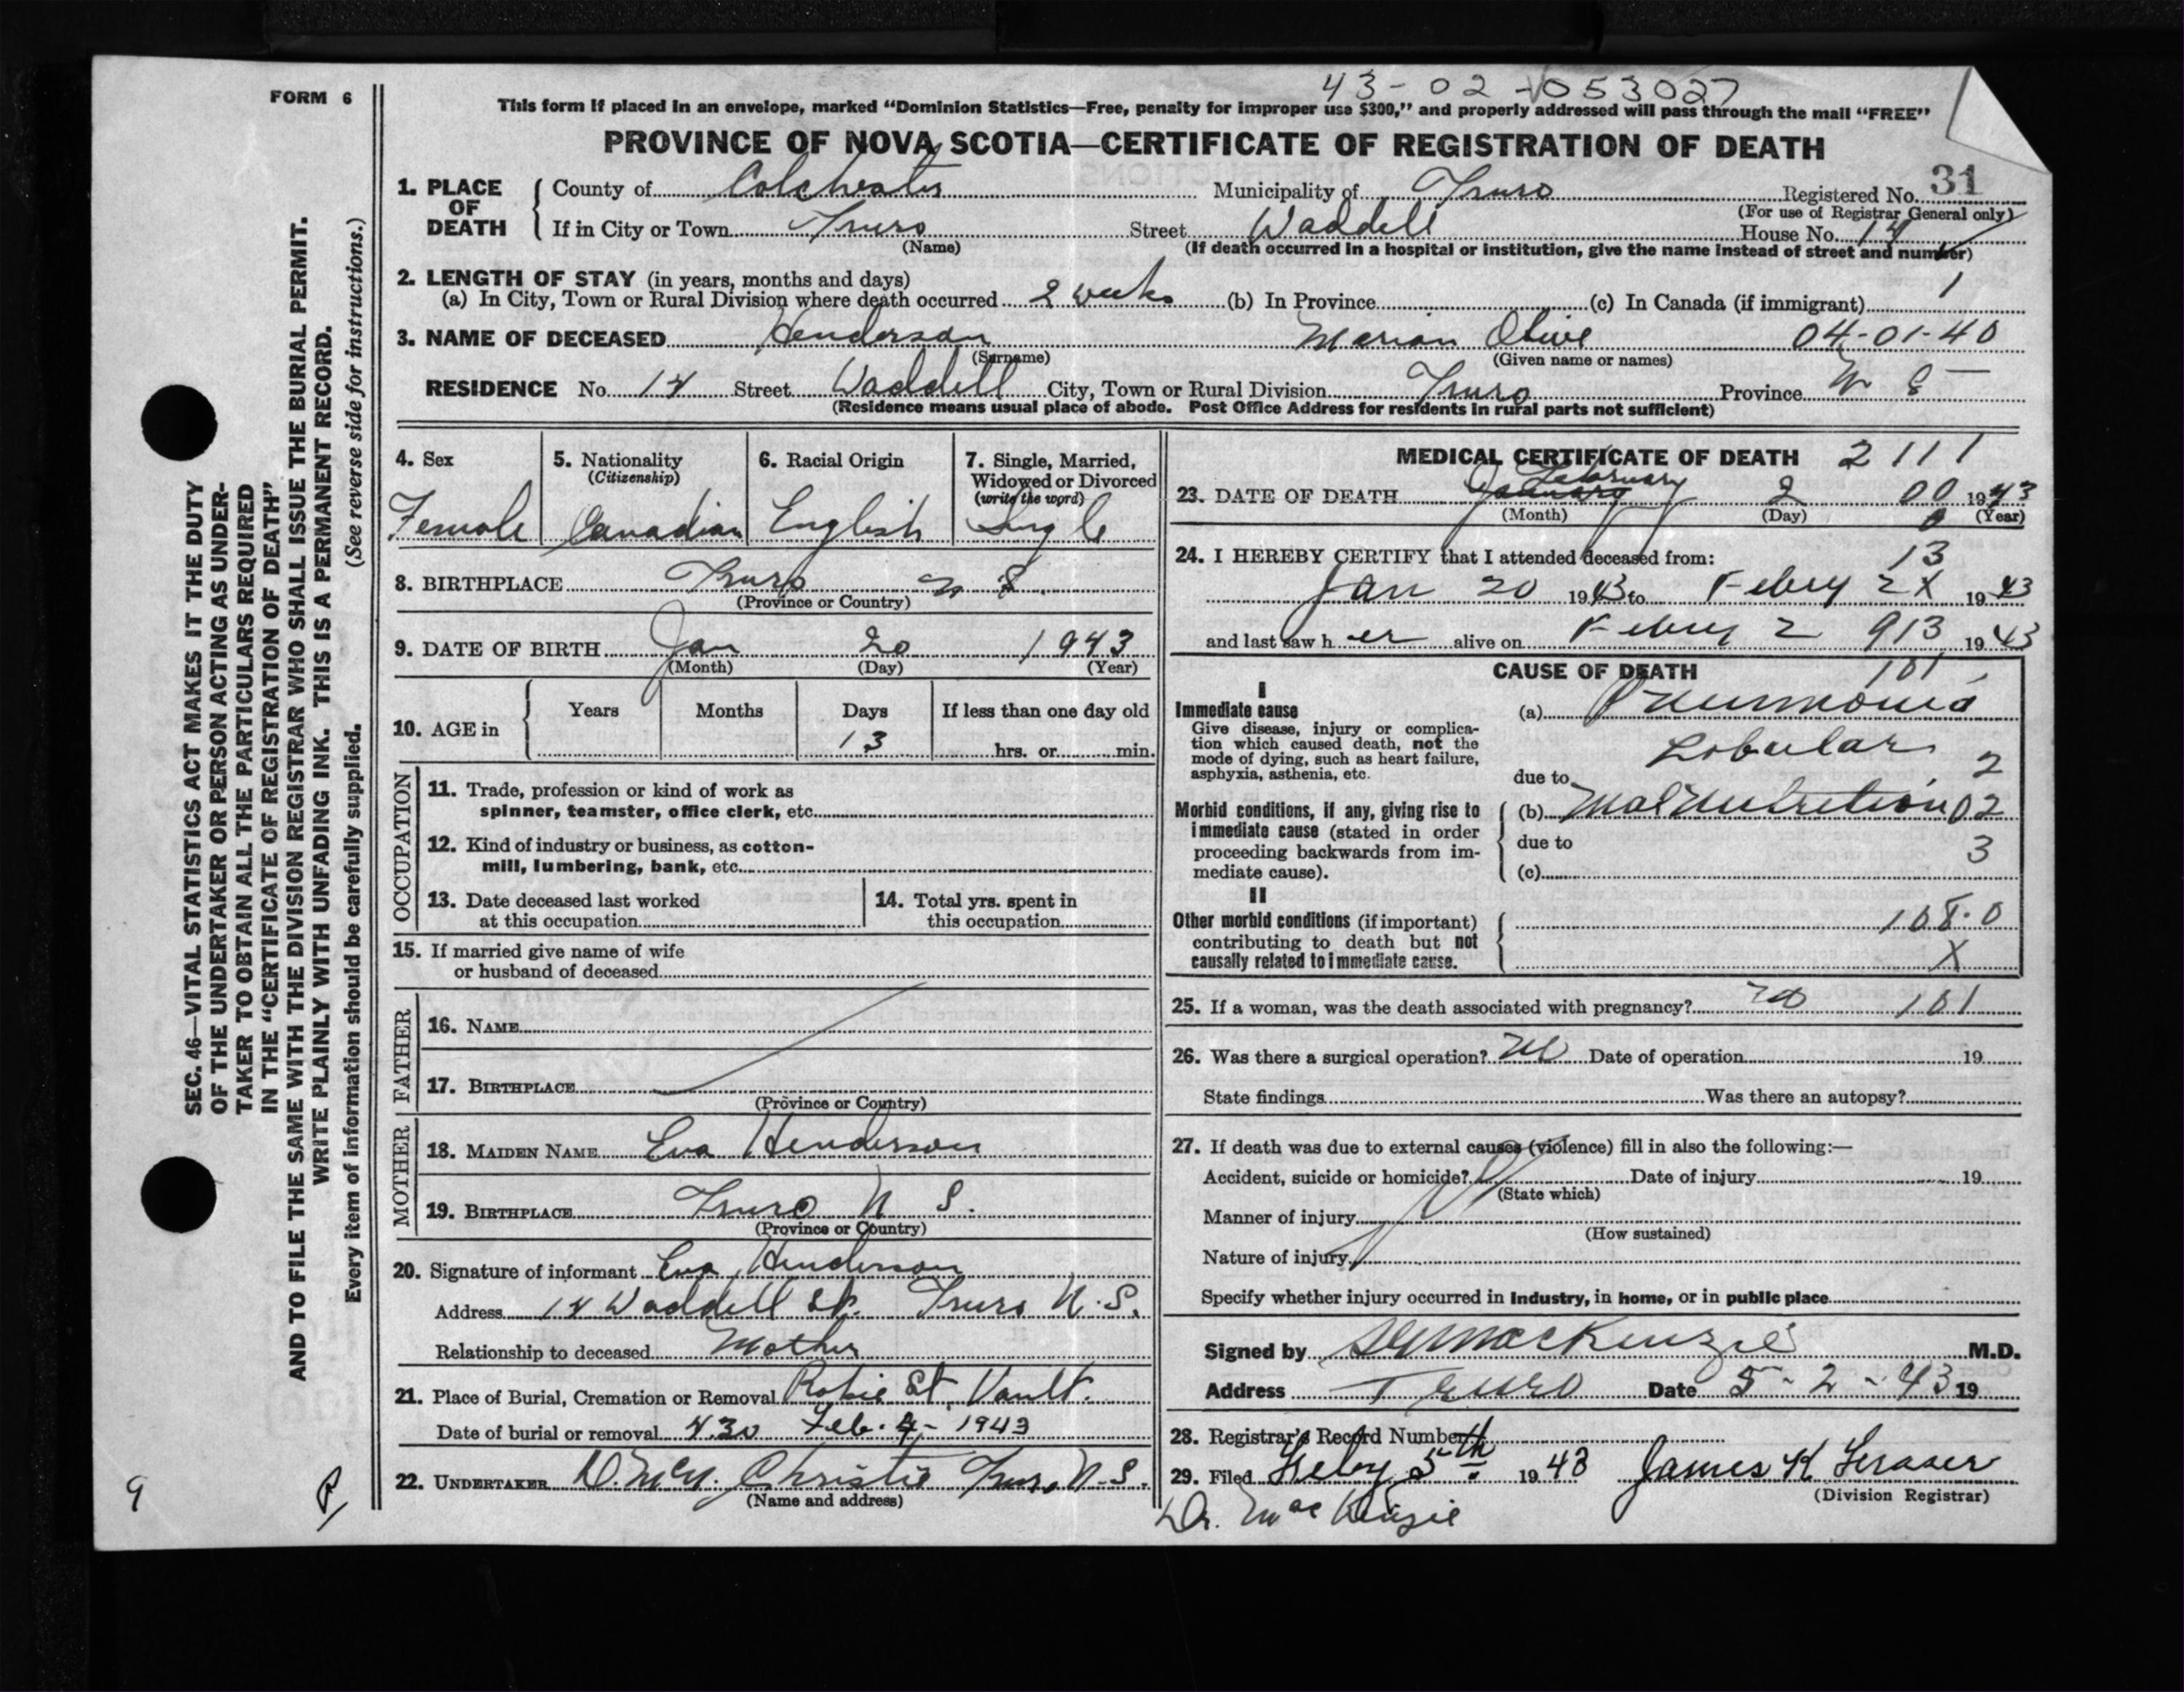 FORM 6
43-02-053027
This form if placed in an envelope, marked “Dominion Statistics—Free, penalty for improper use $300,” and properly addressed will pass through the mail “FREE”
PROVINCE OF NOVA SCOTIA—CERTIFICATE OF REGISTRATION OF DEATH
1. PLACE OF DEATH County of Colchester Municipality of Truro Registered No. 31
(For use of Registrar General only)
If in City or Town Truro Street Waddell House No. 14
(Name) (If death occurred in a hospital or institution, give the name instead of street and number)
2. LENGTH OF STAY (in years, months and days) 1
(a) In City, Town or Rural Division where death occurred 2 weeks (b) In Province (c) In Canada (if immigrant)
3. NAME OF DECEASED Henderson Marion Olive 04-01-40
(Surname) (Given name or names)
RESIDENCE No. 14 Street Waddell City, Town or Rural Division Truro Province N S
(Residence means usual place of abode. Post Office Address for residents in rural parts not sufficient)
4. Sex Female
5. Nationality (Citizenship) Canadian
6. Racial Origin English
7. Single, Married, Widowed or Divorced (write the word) Single
8. BIRTHPLACE Truro N S.
(Province or Country)
9. DATE OF BIRTH Jan 20 1943
(Month) (Day) (Year)
10. AGE in Years Months Days If less than one day old
13 hrs. or min.
OCCUPATION
11. Trade, profession or kind of work as
spinner, teamster, office clerk, etc.
12. Kind of industry or business, as cotton-
mill, lumbering, bank, etc.
13. Date deceased last worked
at this occupation
14. Total yrs. spent in
this occupation
15. If married give name of wife
or husband of deceased
FATHER
16. NAME
17. BIRTHPLACE
(Province or Country)
MOTHER
18. MAIDEN NAME Eva Henderson
19. BIRTHPLACE Truro N S.
(Province or Country)
20. Signature of informant Eva Henderson
Address 14 Waddell St. Truro N.S.
Relationship to deceased Mother
21. Place of Burial, Cremation or Removal Robie St. Vault.
Date of burial or removal 4.30 Feb. 4- 1943
22. UNDERTAKER D. McN. Christie Truro, N.S.
(Name and address)
MEDICAL CERTIFICATE OF DEATH 2111
February
23. DATE OF DEATH January 2 00 1943
(Month) (Day) (Year)
24. I HEREBY CERTIFY that I attended deceased from: 13
Jan 20 1943 to Febuy 2 X 1943
and last saw her alive on Febuy 2 913 1943
CAUSE OF DEATH 101
I
Immediate cause
Give disease, injury or complica-
tion which caused death, not the
mode of dying, such as heart failure,
asphyxia, asthenia, etc.
(a) Pneumonia
Lobular
due to 2
Morbid conditions, if any, giving rise to
immediate cause (stated in order
proceeding backwards from im-
mediate cause).
(b) Mal Nutrition 02
due to 3
(c)
II
Other morbid conditions (if important)
contributing to death but not
causally related to immediate cause.
108.0
X
25. If a woman, was the death associated with pregnancy? no 101
26. Was there a surgical operation? No Date of operation 19
State findings Was there an autopsy?
27. If death was due to external causes (violence) fill in also the following:—
Accident, suicide or homicide? Date of injury 19
(State which)
Manner of injury
(How sustained)
Nature of injury
Specify whether injury occurred in industry, in home, or in public place
Signed by MacKenzie M.D.
Address Truro Date 5-2-43 19
28. Registrar's Record Number
29. Filed Feby 5th. 1943 James K Fraser
(Division Registrar)
Dr. MacKenzie
SEC. 46—VITAL STATISTICS ACT MAKES IT THE DUTY
OF THE UNDERTAKER OR PERSON ACTING AS UNDER-
TAKER TO OBTAIN ALL THE PARTICULARS REQUIRED
IN THE “CERTIFICATE OF REGISTRATION OF DEATH”
AND TO FILE THE SAME WITH THE DIVISION REGISTRAR WHO SHALL ISSUE THE BURIAL PERMIT.
WRITE PLAINLY WITH UNFADING INK. THIS IS A PERMANENT RECORD.
Every item of information should be carefully supplied. (See reverse side for instructions.)
9